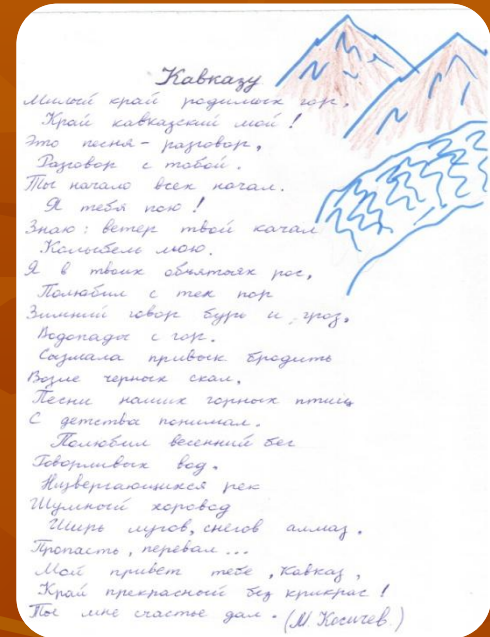 Кавказу
Милый край родимых гор,
Край кавказский мой!
Это песня - разговор,
Разговор с тобой.
Ты начало всех начал.
Я тебя пою!
Знаю: ветер твой качал
Колыбель мою.
Я в твоих объятьях рос,
Полюбил с тех пор
Зимний говор бурь и гроз,
Водопады с гор.
Сызмала привык бродить
Возле черных скал,
Песни наших горных птиц
С детства понимал.
Полюбил весенний бег
Говорливых вод.
Низвергающихся рек
Шумный хоровод
Ширь лугов, снегов алмаз,
Пропасть, перевал...
Мой привет тебе, Кавказ,
Край прекрасный без прикрас!
Ты мне счастье дал. (М. Косичев.)